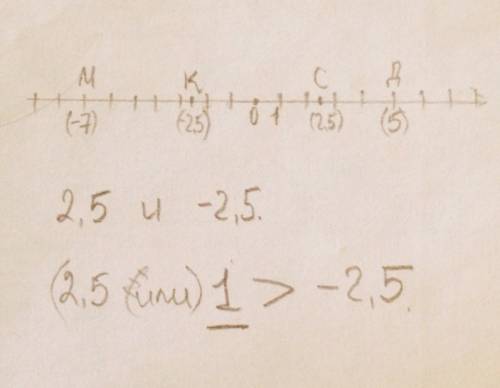 М К С Д
(-7) (-2,5) 0 1 (2,5) (5)
2,5 и -2,5.
(2,5 (или) 1 > -2,5.